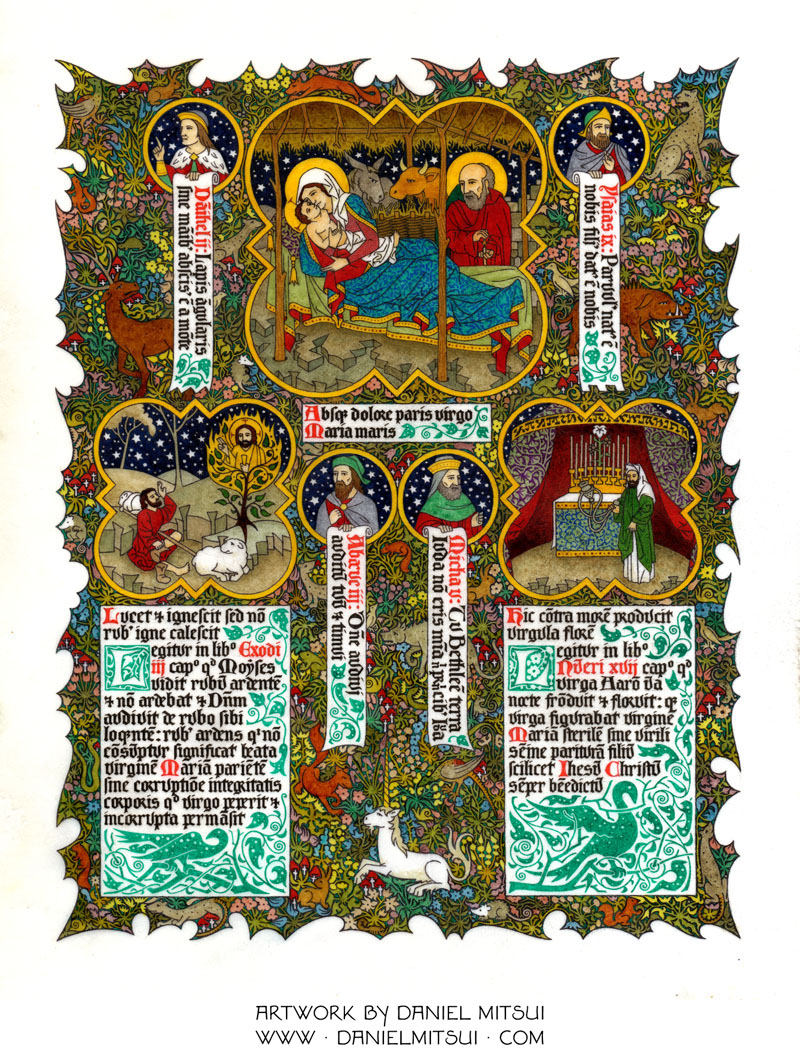 Dāihel ij: Lapis āgularis
sine māib' abscis' ē a mōte
Ysaias ix: Parvvl' nat' ē
nobis fili' dat' ē nobis
Absqꝫ dolore paris virgo
Maria maris
Abacvc iij: Dñe avdivi
avditū tvū & timvi
Micha v: Tv Bethleē terra
Ivda nō eris
Lvcet & ignescit sed nō
rvb' igne calescit
Legitvr in libº Exodi
iij capº qᵈ Moyses
vidit rvbū ardentē
& nō ardebat & Dnm
avdivit de rvbo sibi
loqēntē: rvb' ardens q' nō
cōsvptvr significat beata
virginē Mariā pariētē
sine corrvptiōe integritatis
corporis qᵈ virgo peperit &
incorrvpta permāsit
Hic cōtra morē prodvcit
virgvla florē
Legitvr in libº
Nvēri xvij capº qᵈ
virga Aarō vna
nocte frōdvit & florvit: q
virga figvrabat virginē
Mariā sterilē sine virili
sēine paritvrā filiū
scilicet Ihesū Christū
sēper bēedictū
ARTWORK BY DANIEL MITSUI
WWW · DANIELMITSUI · COM